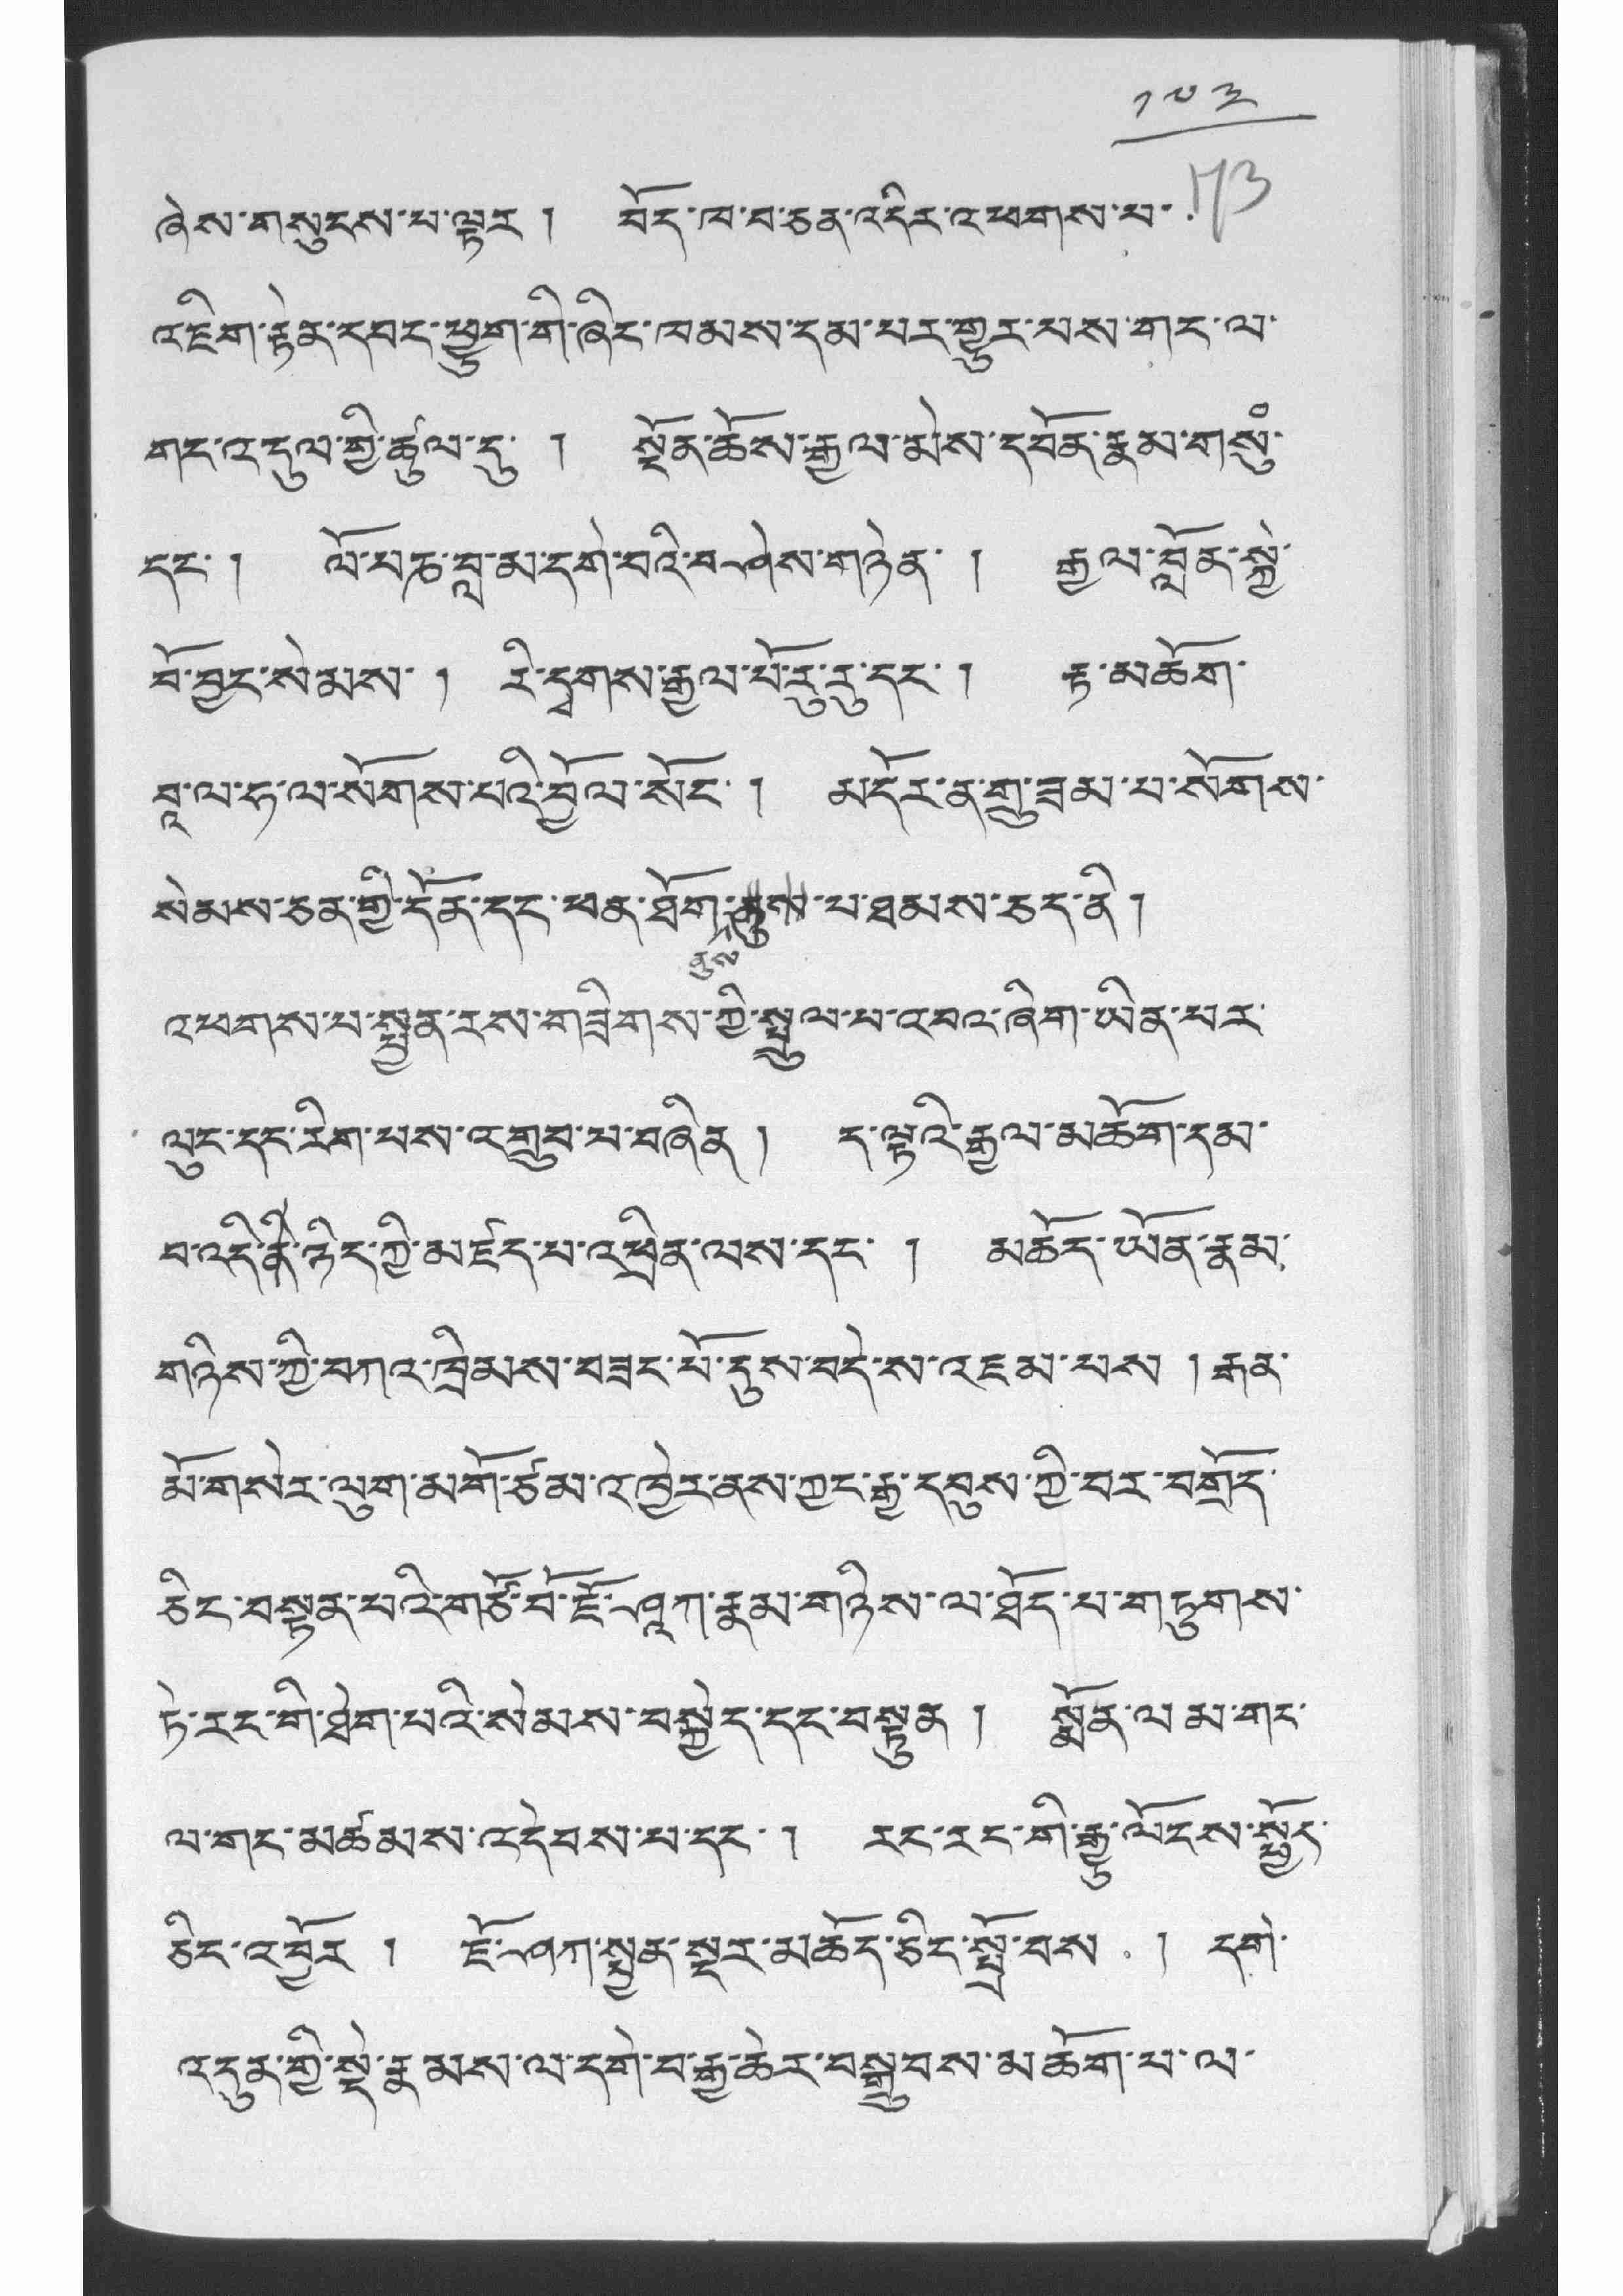 ༡༧༣
173
ཞེས་གསུངས་པ་ལྟར། བོད་ཁ་བ་ཅན་འདིར་འཕགས་པ་
འཇིག་རྟེན་དབང་ཕྱུག་གི་ཞིང་ཁམས་དམ་པར་གྱུར་པས་གང་ལ་
གང་འདུལ་གྱི་ཚུལ་དུ། སྔོན་ཆོས་རྒྱལ་མེས་དབོན་རྣམ་གསུཾ་
དང་། ལོ་པཎ་བླ་མ་དགེ་བའི་བཤེས་གཉེན་། རྒྱལ་བློན་སྐྱེ་
བོ་བྱང་སེམས་། རི་དྭགས་རྒྱལ་པོ་རུ་རུ་དང་། རྟ་མཆོག་
བཱ་ལ་ཧ་ལ་སོགས་པའི་བྱོལ་སོང་། མདོར་ན་གྲུ་ཟམ་པ་སོགས་
སེམས་ཅན་གྱི་དོན་དང་ཕན་ཐོག་ནུས་པ་ཐམས་ཅད་ནི།
འཕགས་པ་སྤྱན་རས་གཟིགས་ཀྱི་སྤྲུལ་པ་འབའ་ཞིག་ཡིན་པར་
ལུང་དང་རིག་པས་འགྲུབ་པ་བཞིན། ད་ལྟའི་རྒྱལ་མཆོག་དམ་
པ་འདི་ཉིད་ཀྱི་མཛད་པ་འཕྲིན་ལས་དང་། མཆོད་ཡོན་རྣམ་
གཉིས་ཀྱི་བཀའ་ཁྲིམས་བཟང་པོ་དུས་བདེ་ས་འཇམ་པས། རྒན་
མོ་གསེར་ལུག་མགོ་ཙམ་འཁྱེར་ནས་ཀྱང་རྒྱ་དབུས་ཀྱི་བར་བགྲོད་
ཅིང་བསྟན་པའི་གཙོ་བོ་ཇོ་ཤཱཀ་རྣམ་གཉིས་ལ་ཐོད་པ་གཏུགས་
ཏེ་རང་གི་ཐེག་པའི་སེམས་བསྐྱེད་དང་བསྟུན། སྨོན་ལམ་གང་
ལ་གང་མཚམས་འདེབས་པ་དང་། རང་རང་གི་རྒྱུ་ལོངས་སྤྱོད་
ཅིང་འབྱོར། ཇོ་ཤཀ་སྤྱན་སྔར་མཆོད་ཅིང་སྤྲོ་བས། དགེ་
འདུན་གྱི་སྡེ་རྣམས་ལ་དགེ་བ་རྒྱ་ཆེར་བསྒྲུབས་མཆོག་པ་ལ་